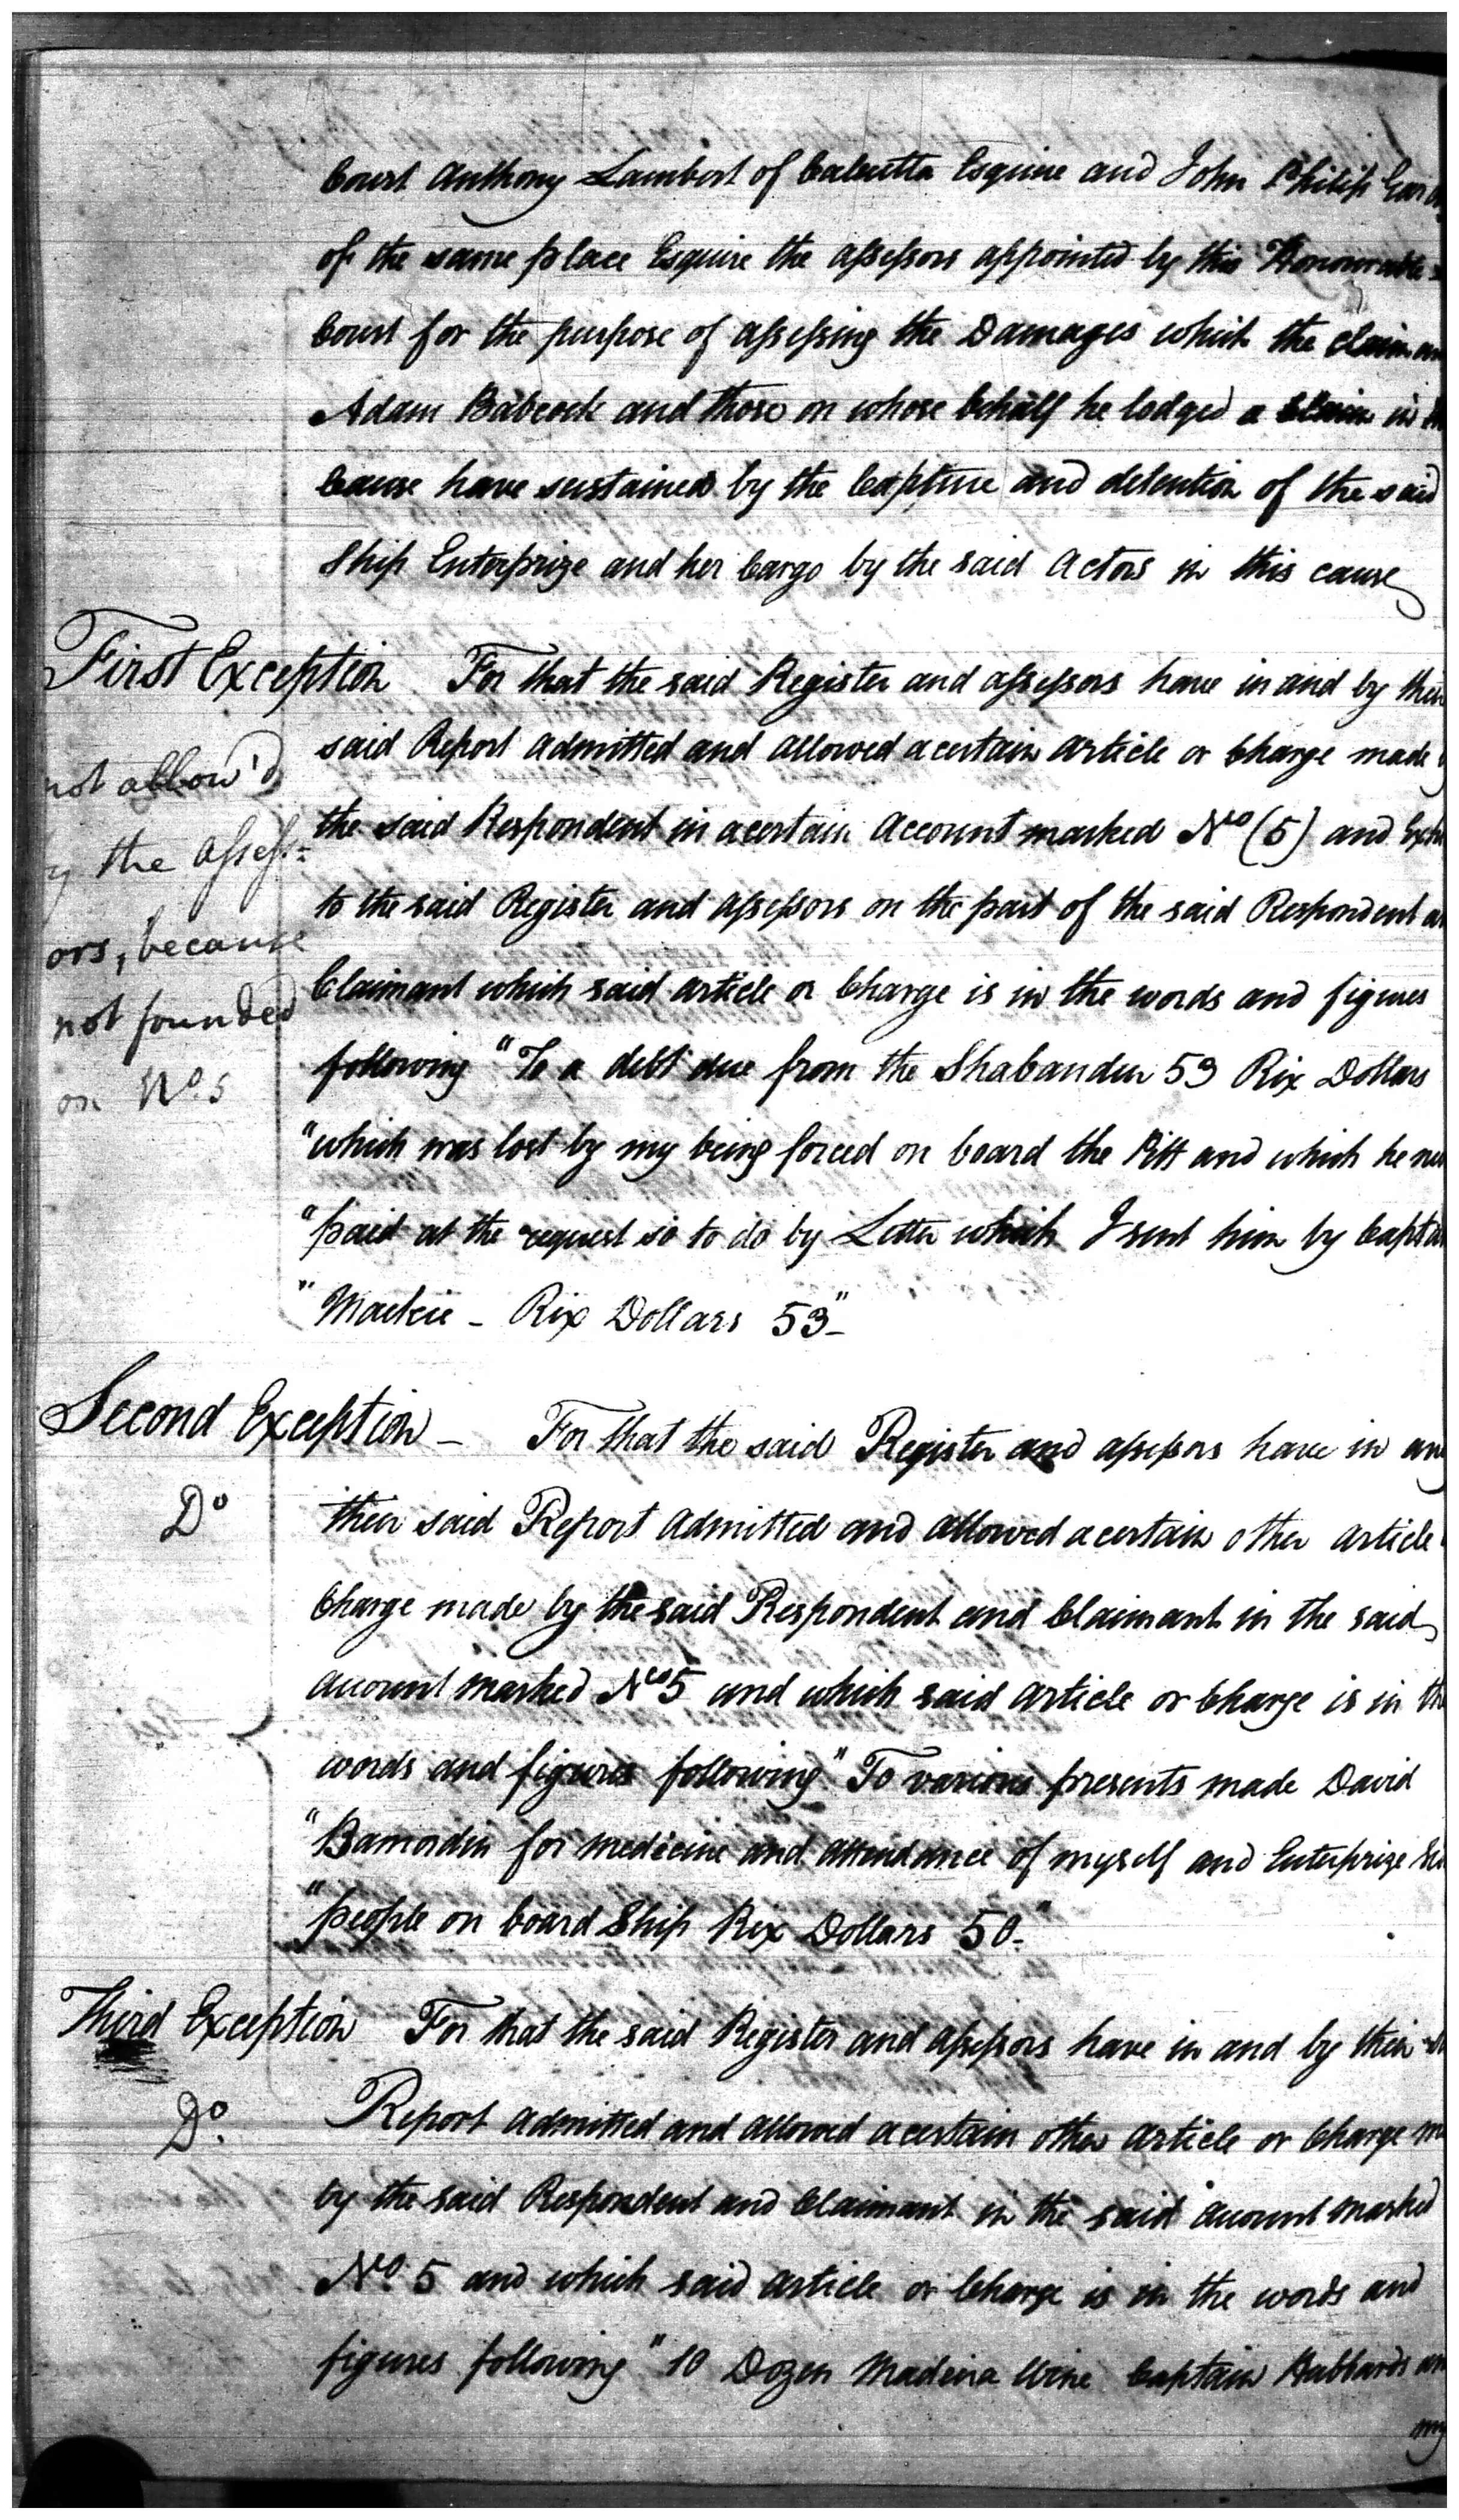 Court Anthony Lambert of Calcutta Esquire and John Philip
of the same place Esquire the assessors appointed by this Honourable
Court for the purpose of assessing the Damages which the
Adam Babcock and those on whose behalf he lodged a Claim in
Cause have sustained by the Capture and detention of the said
Ship Enterprize and her Cargo by the said Actors in this cause
First Exception For that the said Register and assessors have in and by their
not allow'd
said Report admitted and allowed a certain article or Charge made
the said Respondent in a certain Account marked No (5) and
the assess=
to the said Register and assessors on the part of the said Respondent
ors, because
Claimant which said article or Charge is in the words and figures
not founded
following "To a debt due from the Shabander 53 Rix Dollars
on No. 5
"which was lost by my being forced on board the Pitt and which he
"paid at the request so to do by Letter which I sent him by
"Mackie - Rix Dollars 53"-
Second Exception - For that the said Register and assessors have in
Do
their said Report admitted and allowed a certain other article
Charge made by the said Respondent and Claimant in the said
account marked No 5 and which said article or Charge is in the
words and figures following "To various presents made David
"for medicine and attendance of myself and Enterprize
"people on board Ship Rix Dollars 50-"
Third Exception For that the said Register and assessors have in and by their
Do.
Report admitted and allowed a certain other article or Charge
by the said Respondent and Claimant in the said account marked
No. 5 and which said article or Charge is in the words and
figures following "10 Dozen Madeira Wine Captain Hubbards
my